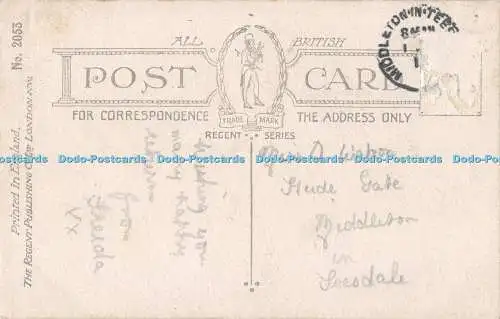 No. 2053
Printed in England.
THE REGENT PUBLISHING CO LTD LONDON NW.
ALL BRITISH
POST CARD
FOR CORRESPONDENCE THE ADDRESS ONLY
TRADE MARK
REGENT SERIES
MIDDLETON-IN-TEES
wishing you
many happy
returns
from
Freda
XX
Miss D Watson
Hude Gate
Middleton
in
Teesdale
Dodo-Postcards Dodo-Postcards Dodo-Postcards Dodo-Postcards Dodo-Postcards Dodo-Postcards Dodo-Postcards